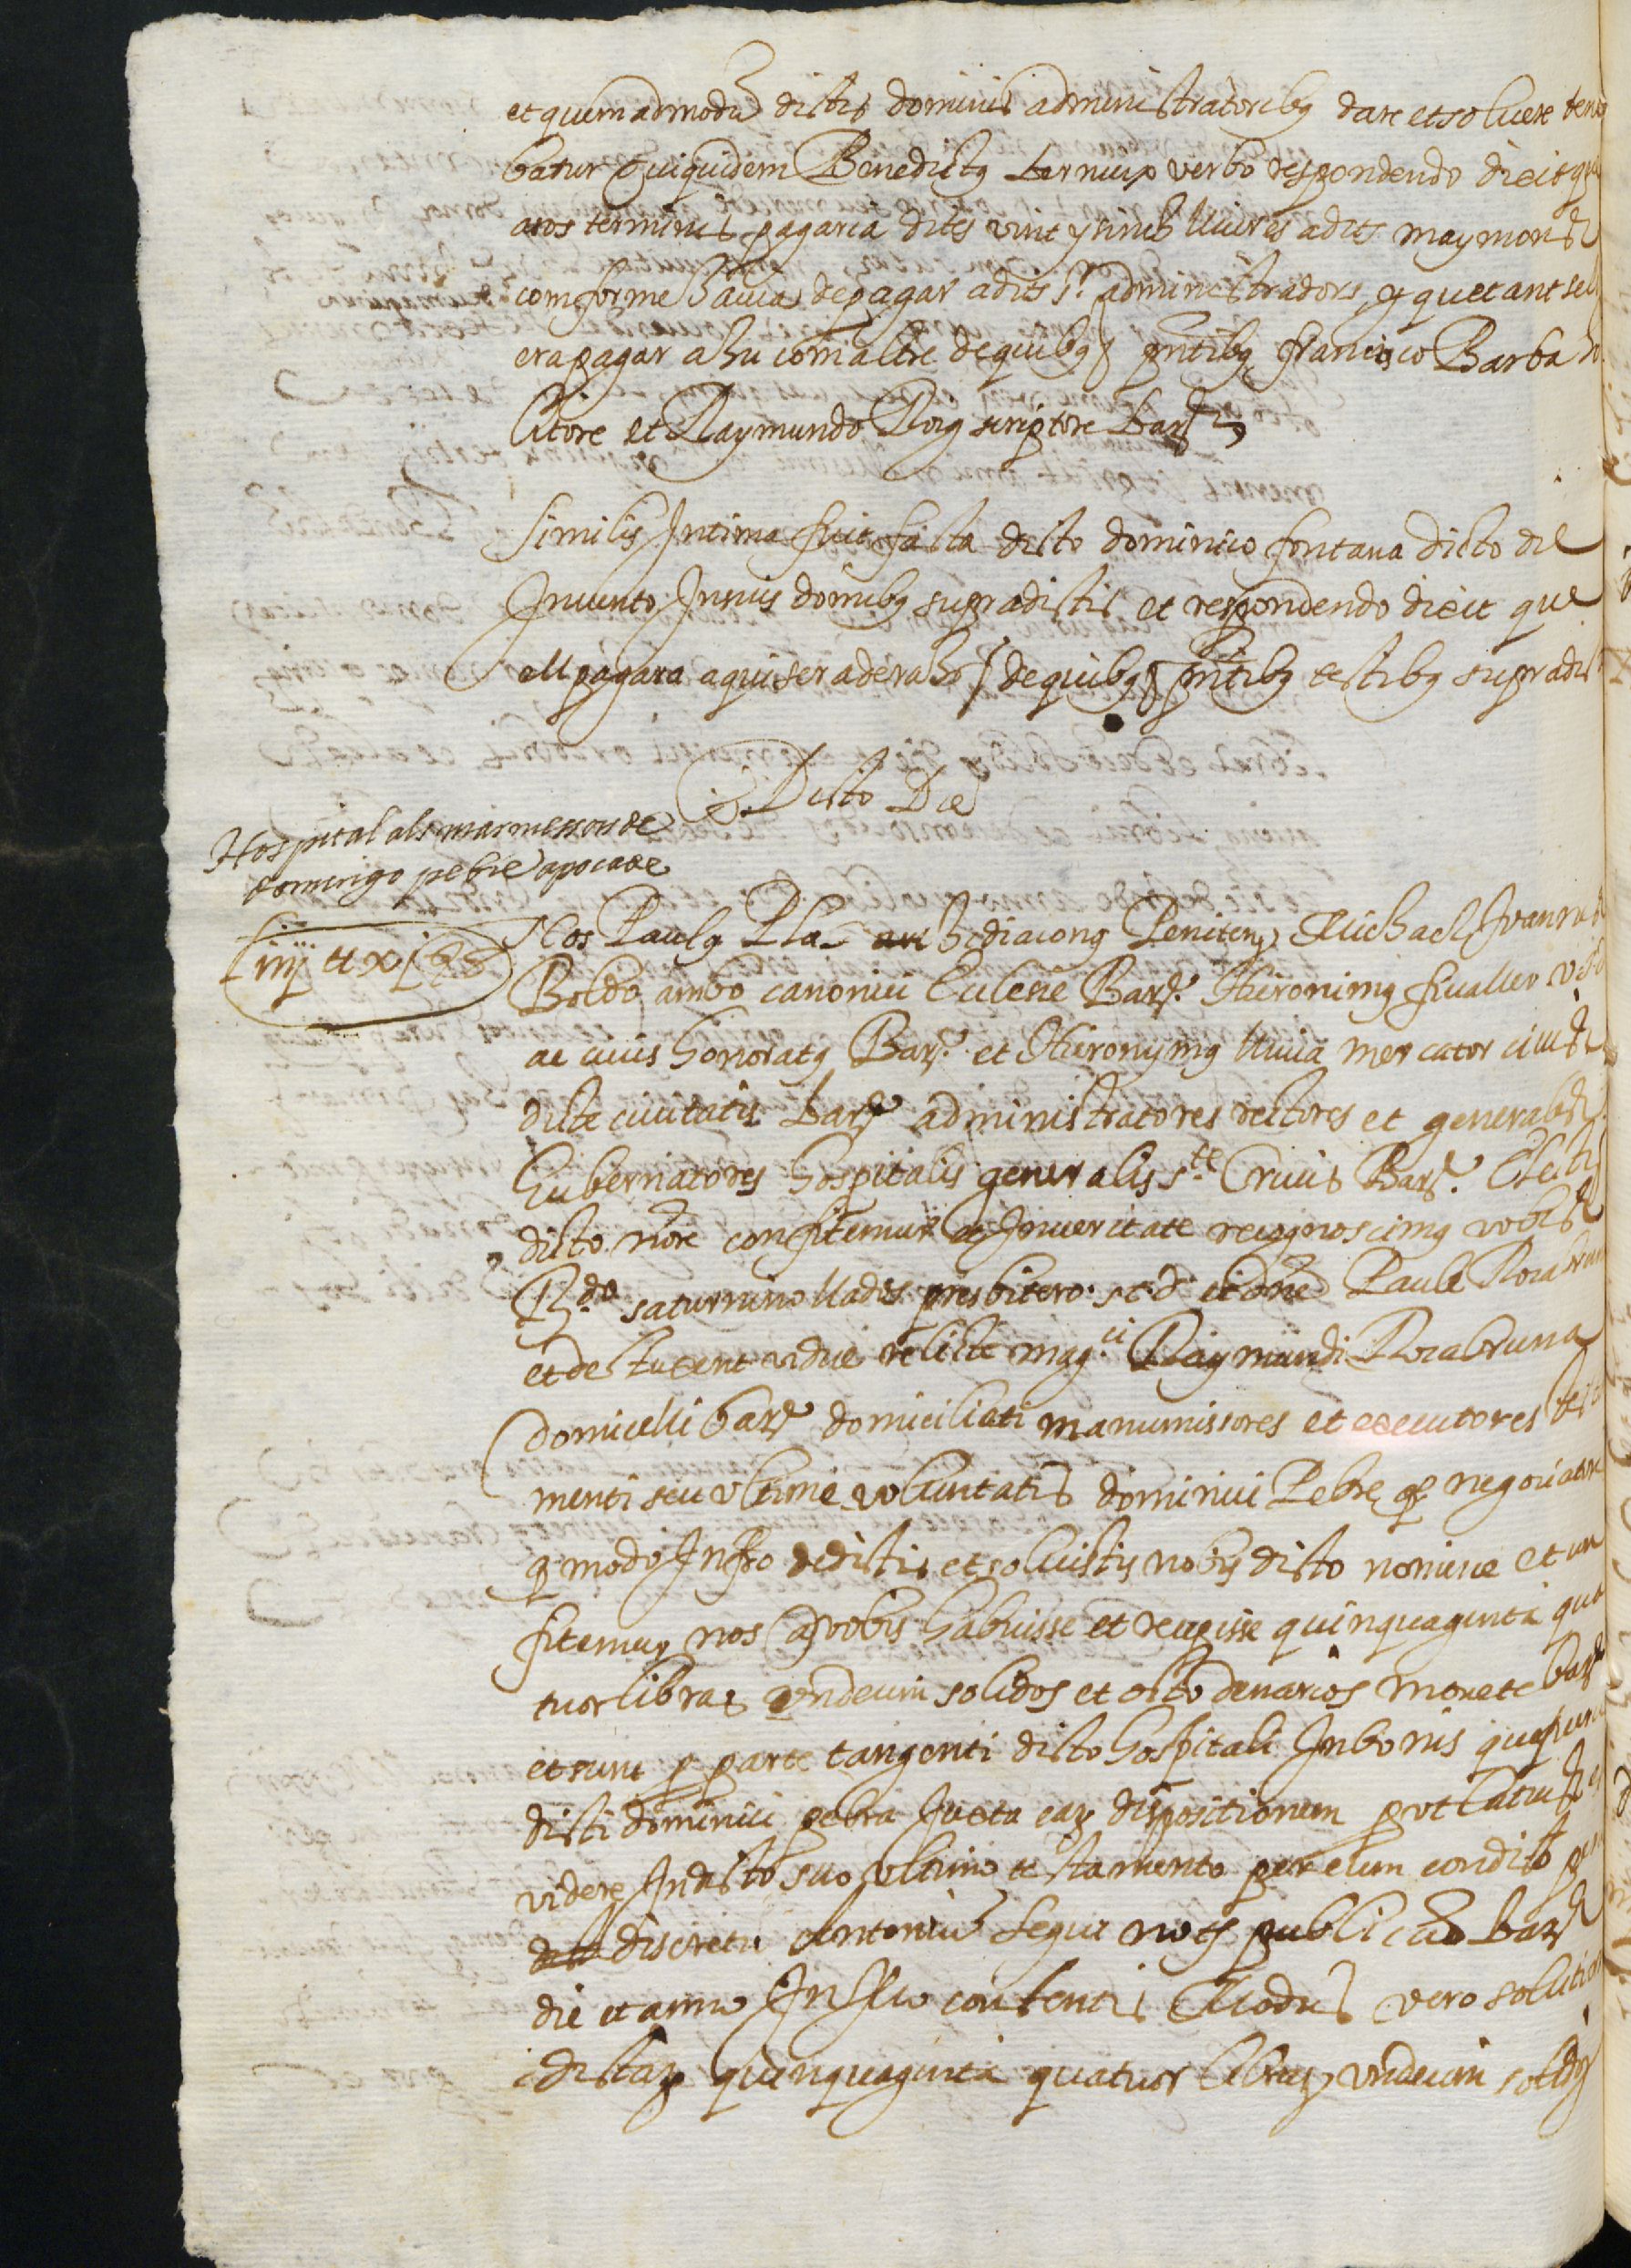 et quemadmodu dictis dominis administratoribus dare et soluere tene
batur Quiquidem Benedictus bernuix verbo respondendo dicit que
aros terminis pagaria dites vint y sinch lliures a dits maymon
comforme hauia de pagar a dits s.rs administradors, y que tant sel
era pagar a hu com altre de quibus pntibus francisco Barba
litore et Raymundo Roig scriptore bar.e
Similis Intima fuit facta dicto dominico fontana dicto die
Inuento Insuis domibus supradictis et respondendo dicit que
ell pagara a qui sera de raho / de quibus pntibus testibus supradict
Dicto Die
Hospital als marmessors de
domingo pebre apoca de
Liiij ll xj s 8
Nos Paulus Pla archidiaconus Peniten Michael Juan
Boldo ambo canonici Ecclesie Bar.e Hieronimus fiualler
ac ciuis honoratus Bar.e et Hieronymus lliuia mercator ciuis
dicte ciuitatis bar.e administratores rectores et generales
Gubernatores hospitalis generalis s.te Crucis Bar.e
dicto noie confitemur et Inueritate recognoscimus vobis
R.do saturnino llados presbitero et dne Paule Rocabruna
et de vidue relicte mag.ci Raymundi Rocabruna
domicelli bar.e domiciliati manumissores et executores testa
menti seu vltime voluntatis dominici Pebre q.o negociatore
q modo Infro dedistis et soluistis nobis dicto nomine et con
fitemur nos a vobis habuisse et recepisse quinquaginta qua
tuor libras vndecim solidos et octo denarios monete bar.e
et sunt p parte tangenti dicto hospitali In bonis que fuerunt
dicti dominici pebra Juxta eay dispositionem put latius
videre In dicto suo vltimo testamento per eum condito
discretu Antoniu Segui nots publicus bar.e
die et anno In contentis Modus vero solution
dictay quinquaginta quatuor libray vndecim solidos